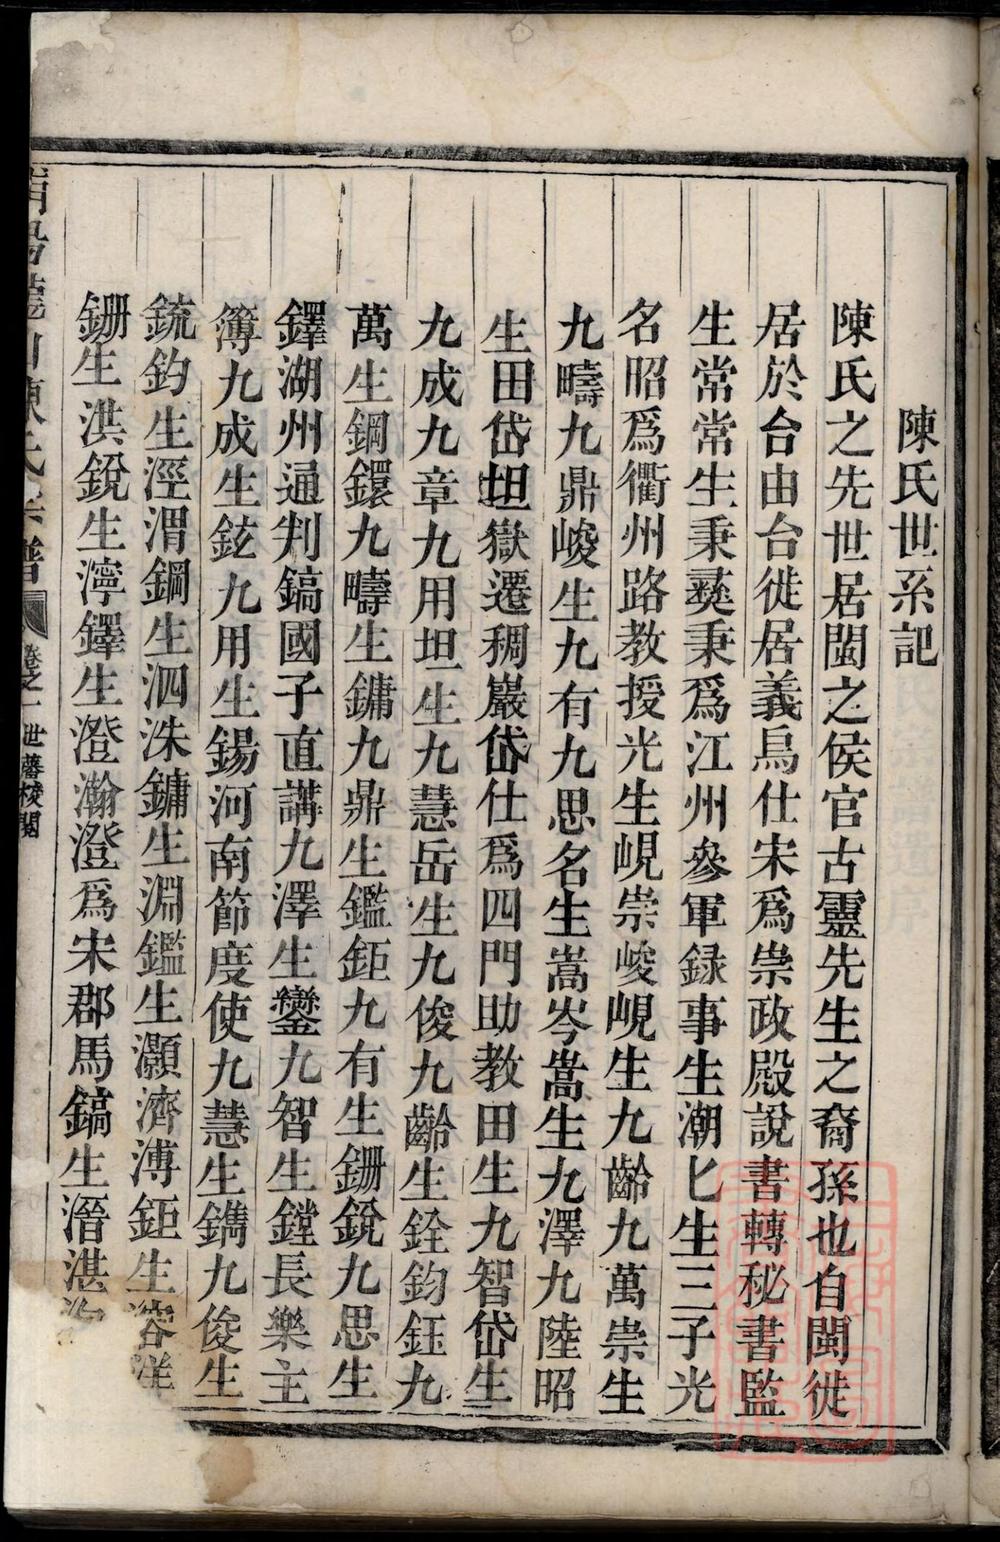 陳氏世系記
陳氏之先世居閩之侯官古靈先生之裔孫也自閩徙
居於台由台徙居義烏仕宋爲崇政殿說書轉秘書監
生常常生秉彝秉爲江州參軍録事生潮匕生三子光
名昭爲衢州路教授光生峴崇峻峴生九齡九萬崇生
九疇九鼎峻生九有九思名生嵩岑嵩生九澤九陸昭
生田岱坦嶽遷稠巖岱仕爲四門助教田生九智岱生
九成九章九用坦生九慧岳生九俊九齡生銓鈞鈺九
萬生鋼鐶九疇生鏞九鼎生鑑鉅九有生鏁銳九思生
鐸湖州通判鎬國子直講九澤生鑾九智生鏜長樂主
簿九成生鉉九用生鍚河南節度使九慧生鐫九俊生
銃鈞生涇渭鋼生泗洙鏞生淵鑑生灝濟溥鉅生容洋
鏁生洪銳生濘鐸生澄瀚澄爲宋郡馬鎬生溍湛
陳氏宗譜 卷之一 世蕃校閱